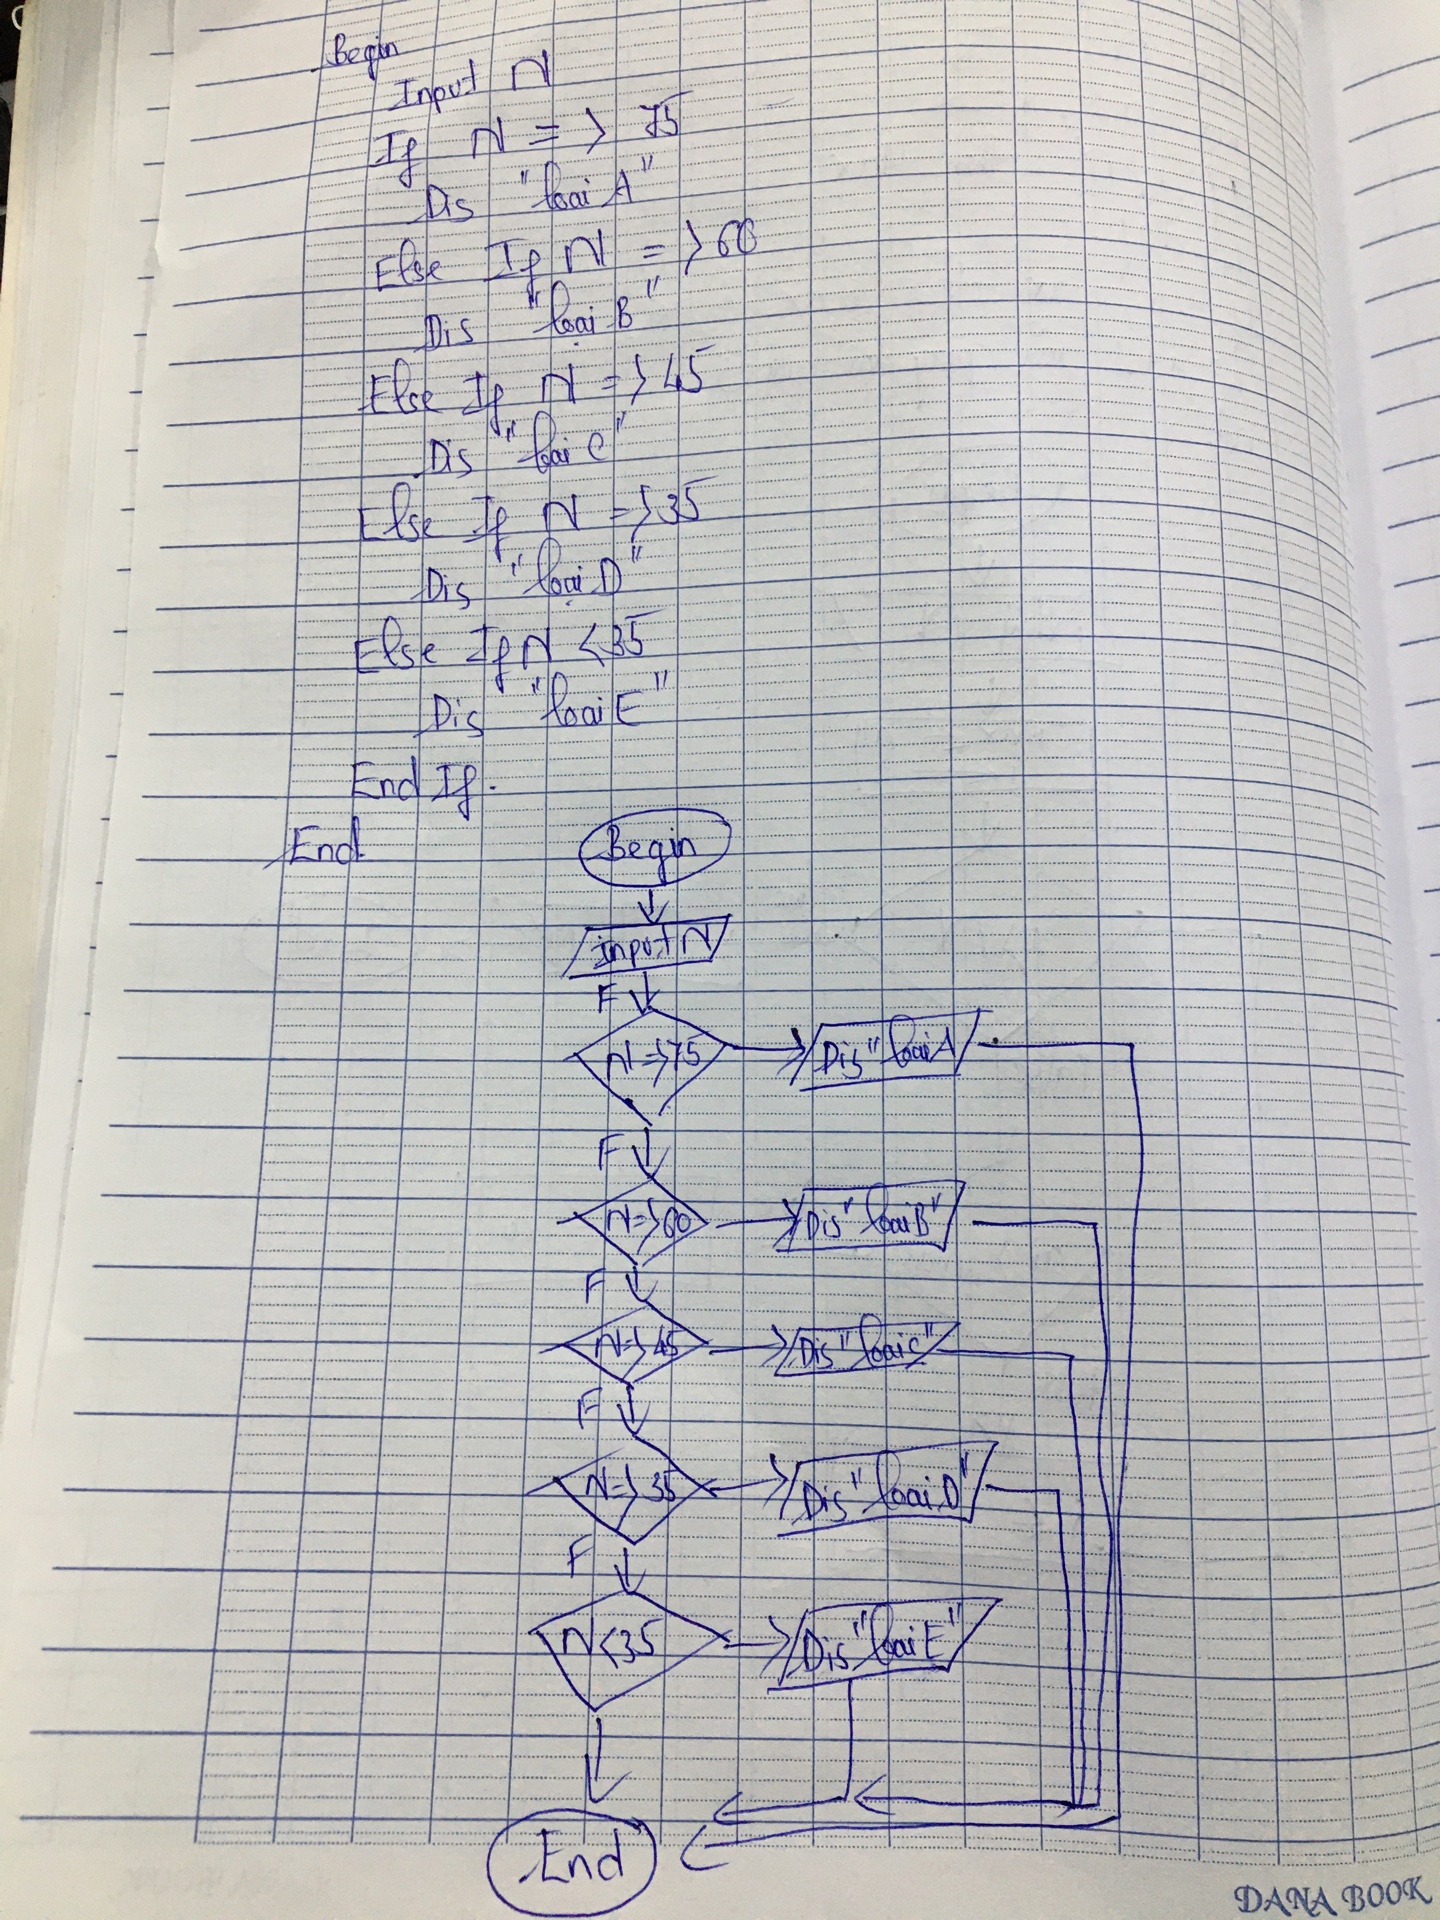 Begin
Input N
If N => 75
Dis "loai A"
Else If N => 60
Dis "loại B"
Else If N => 45
Dis "loai C"
Else If N => 35
Dis "loại D"
Else If N < 35
Dis "loai E"
End If.
End
Begin
Input N
F
N => 75
Dis "loai A"
F
N => 60
Dis "loai B"
F
N => 45
Dis "loai C"
F
N => 35
Dis "loai D"
F
N < 35
Dis "loai E"
End
DANA BOOK